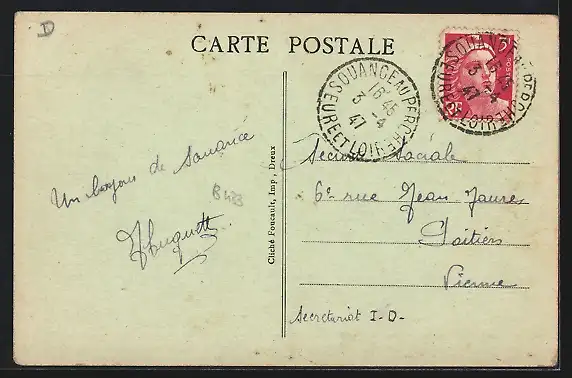 D
CARTE POSTALE
SOUANCE AU PERCHE
16 45
3 -4
47
EURE ET LOIR
3F
POSTES
Un bonjour de Souancé
B 423
Huguette
Cliché Foucault, Imp., Dreux
Sécurité Sociale
6e rue Jean Jaures
Poitiers
Vienne
Secrétariat I-D-